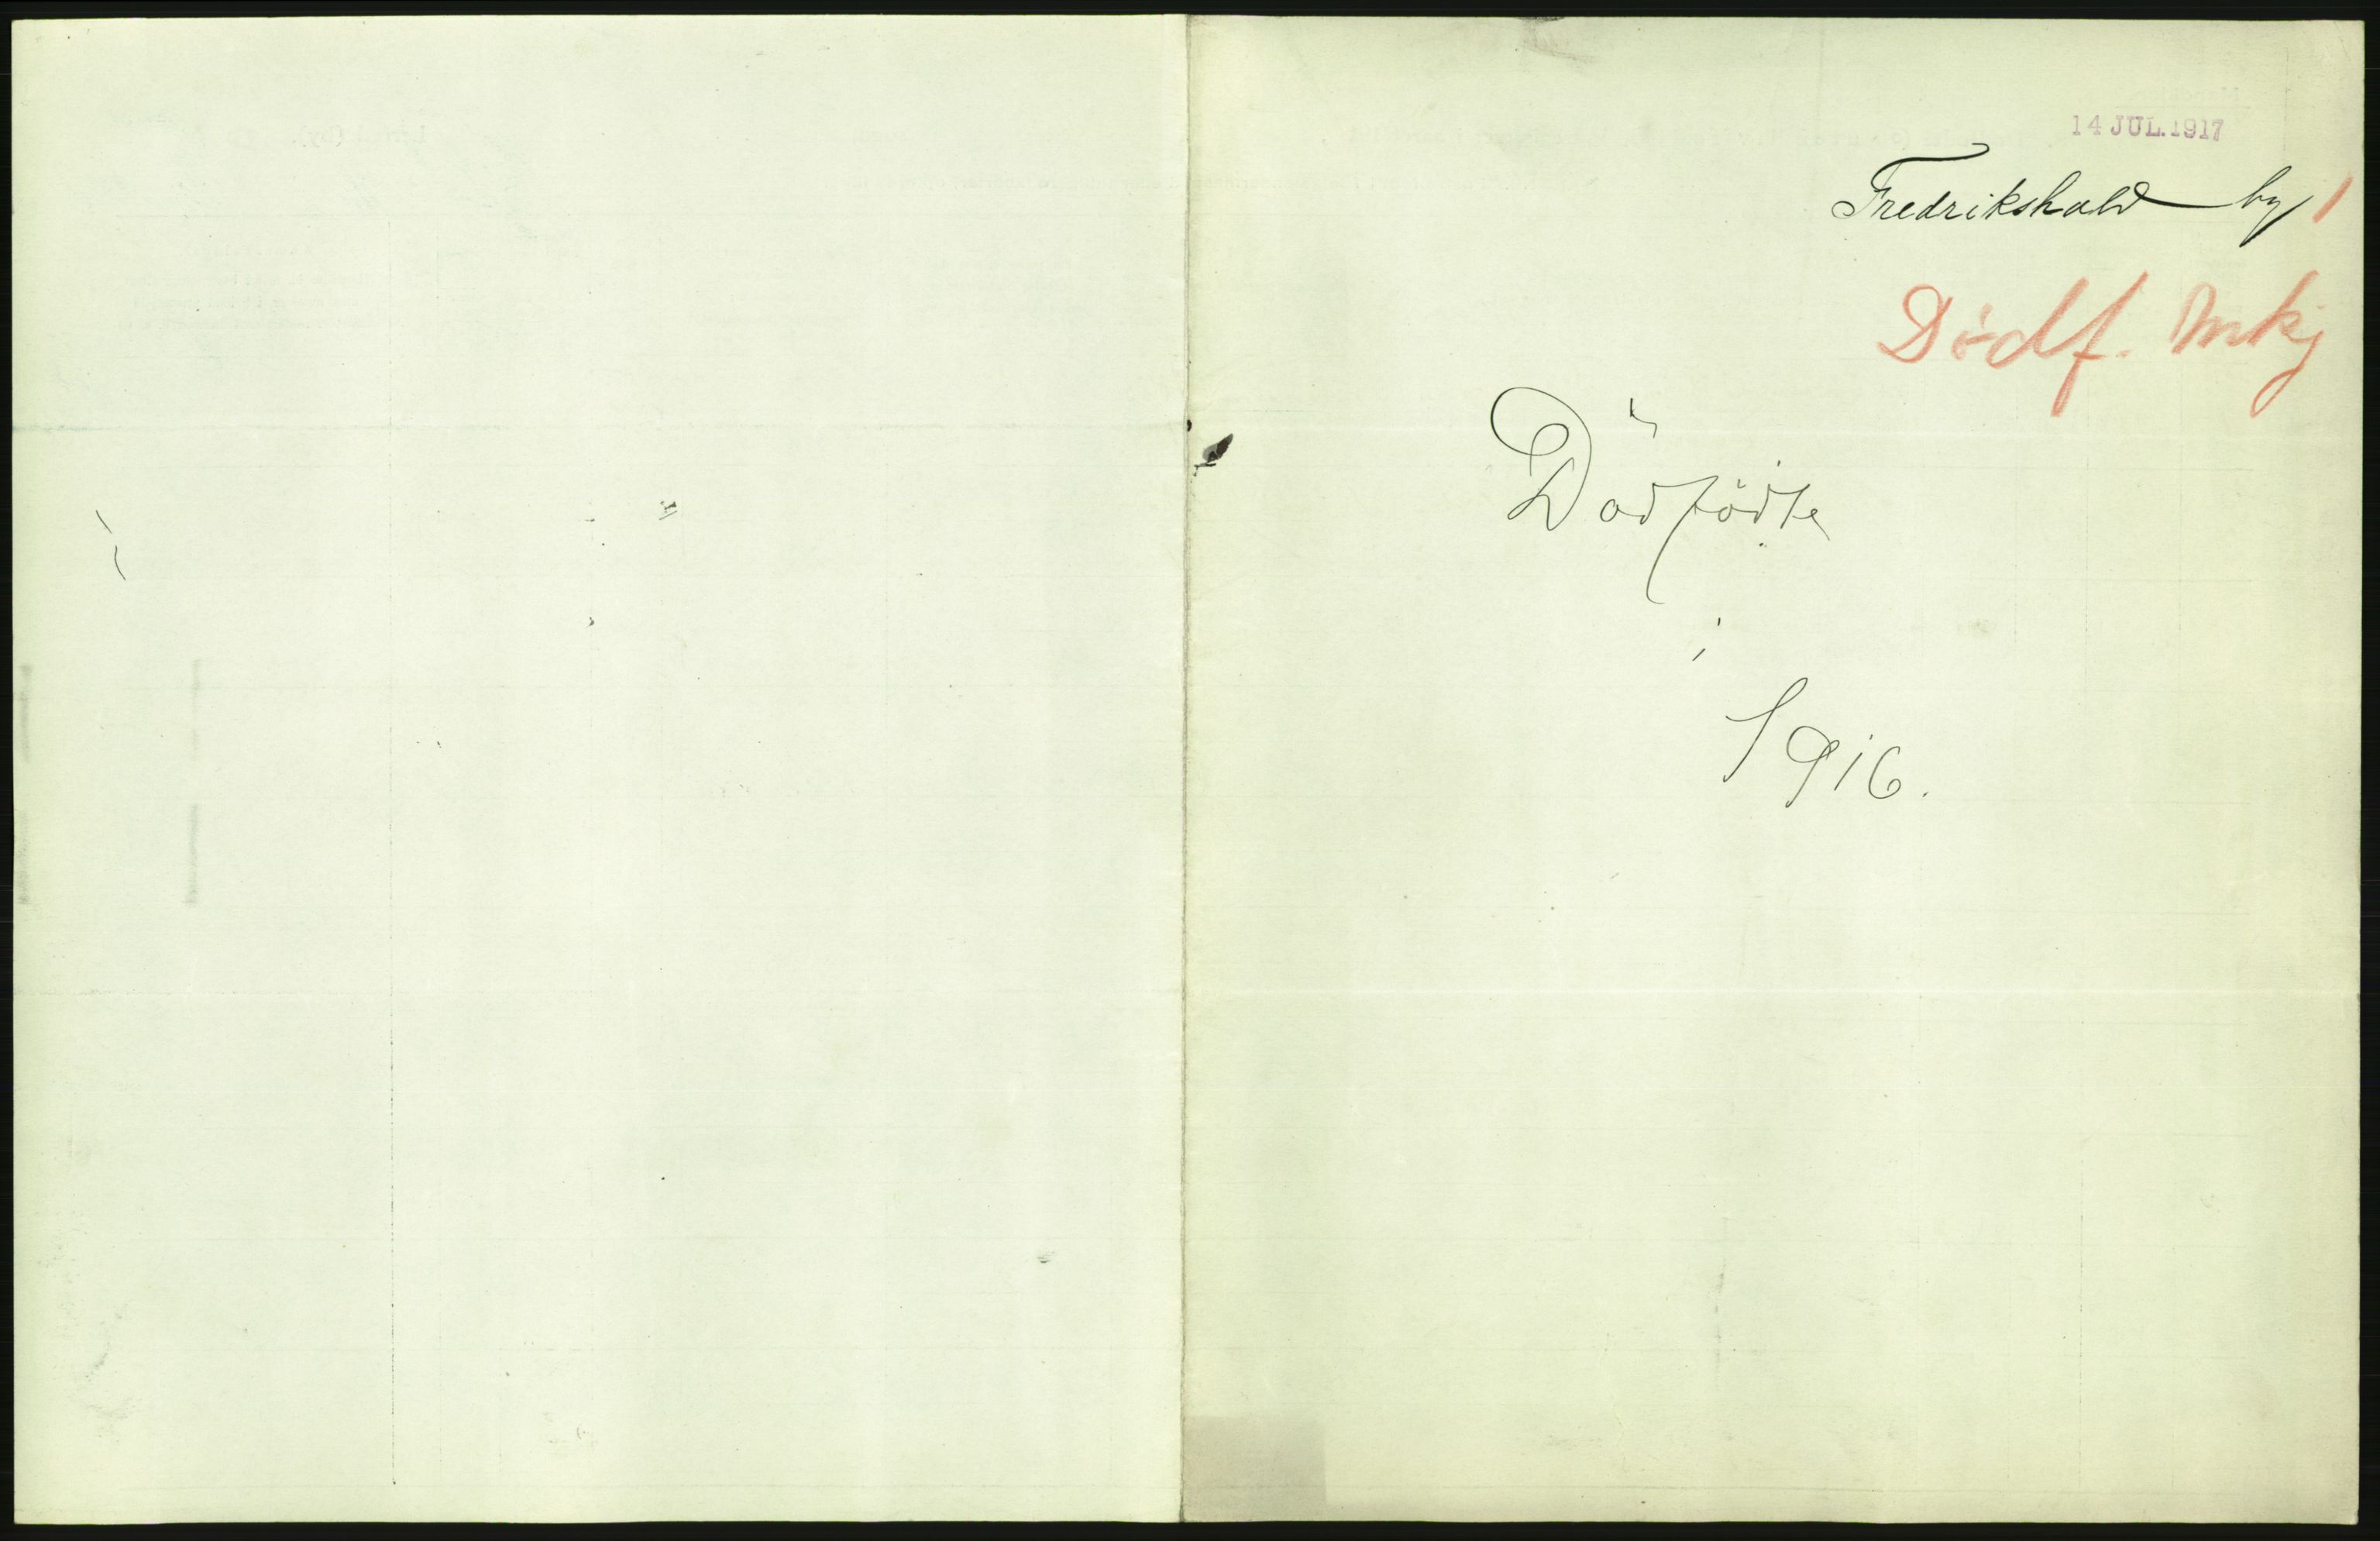 14 JUL. 1917
Fredrikshald by 1
Dødf.
Dödfödte
i
1916.